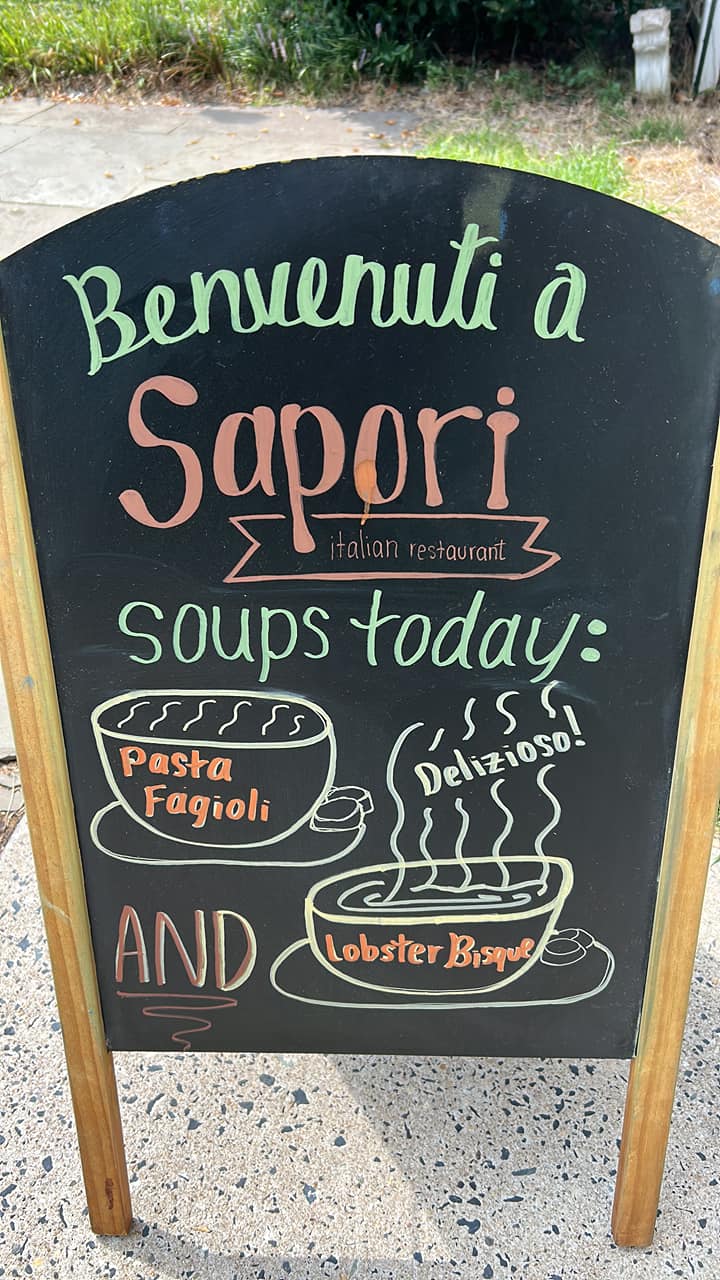 Benvenuti a
Sapori
italian restaurant
soups today:
Delizioso!
Pasta
Fagioli
AND
Lobster Bisque